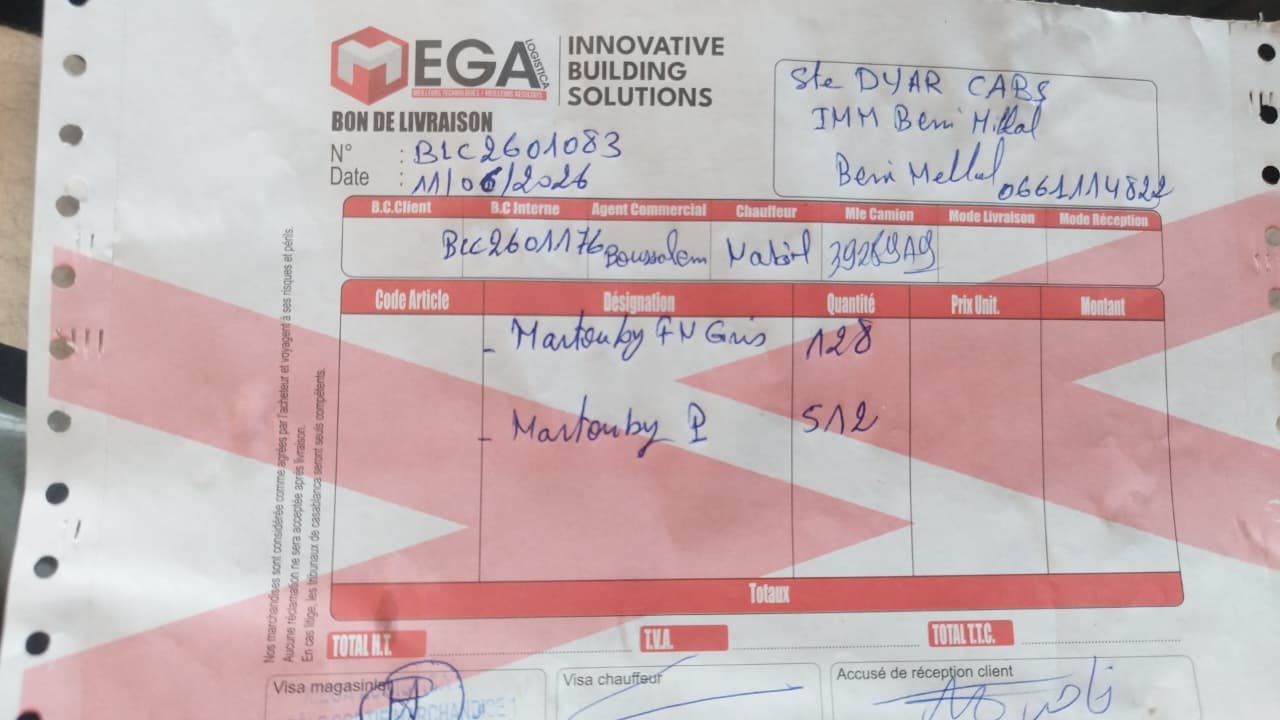 MEGA LOGISTICA
MEILLEURS TECHNOLOGIES / MEILLEURS RÉSULTATS
INNOVATIVE
BUILDING
SOLUTIONS
BON DE LIVRAISON
N° : BLC2601083
Date : 11/06/2026
Ste DYAR CABS
IMM Beni Mellal
Beni Mellal 0661114822
B.C.Client B.C Interne Agent Commercial Chauffeur Mle Camion Mode Livraison Mode Réception
BCC2601176 Boussalem Nabil 39269A9
Code Article Désignation Quantité Prix Unit. Montant
- Martouby FN Gris 128
- Martouby P 512
Totaux
TOTAL H.T. T.V.A. TOTAL T.T.C.
Visa magasinier Visa chauffeur Accusé de réception client
Nos marchandises sont considérée comme agrées par l'acheteur et voyagent à ses risques et périls.
Aucune réclamation ne sera acceptée aprés livraison.
En cas litige, les tribunaux de casablanca seront seuls compétents.